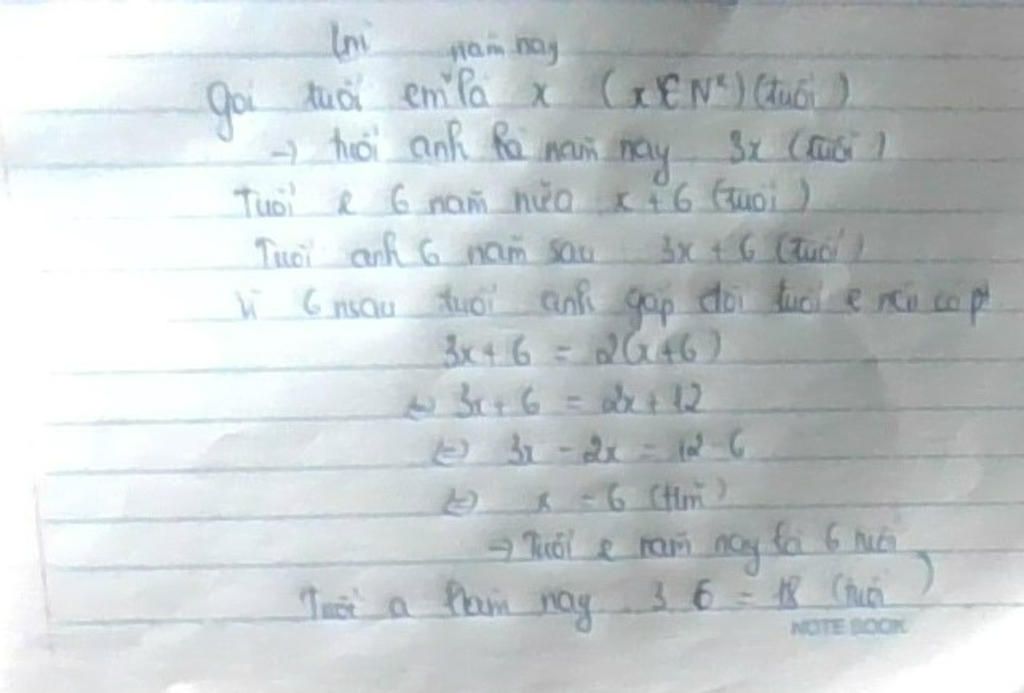 năm nay
gọi tuổi em là x (x ∈ N*) (tuổi)
→ tuổi anh là năm nay 3x (tuổi)
Tuổi e 6 năm nữa x + 6 (tuổi)
Tuổi anh 6 năm sau 3x + 6 (tuổi)
Vì 6 nsau tuổi anh gấp đôi tuổi e nên có pt
3x + 6 = 2(x+6)
⇔ 3x + 6 = 2x + 12
⇔ 3x - 2x = 12 - 6
⇔ x = 6 (tm)
→ Tuổi e năm nay là 6 tuổi
Tuổi a năm nay 3 6 = 18 (tuổi)
NOTE BOOK